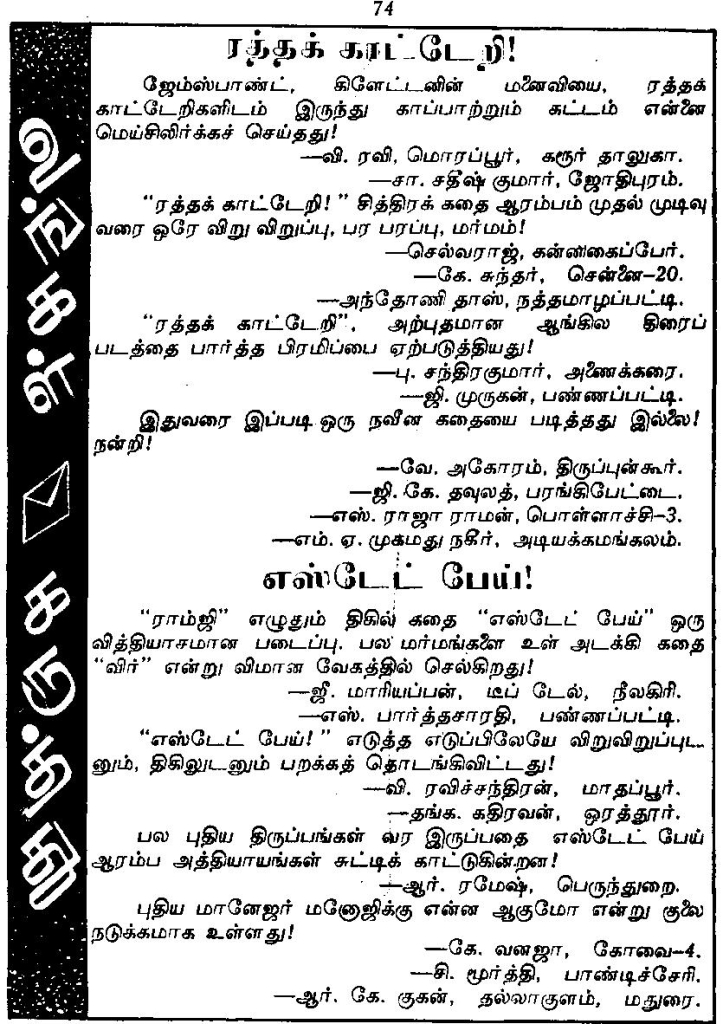 74
ரத்தக் காட்டேறி!
ஜேம்ஸ்பாண்ட், கிளேட்டனின் மனைவியை, ரத்தக்
காட்டேறிகளிடம் இருந்து காப்பாற்றும் கட்டம் என்னை
மெய்சிலிர்க்கச் செய்தது!
—வி. ரவி, மொரப்பூர், கரூர் தாலுகா.
—சா. சதீஷ் குமார், ஜோதிபுரம்.
“ரத்தக் காட்டேறி! ” சித்திரக் கதை ஆரம்பம் முதல் முடிவு
வரை ஒரே விறு விறுப்பு, பர பரப்பு, மர்மம்!
—செல்வராஜ், கன்னிகைப்பேர்.
—கே. சுந்தர், சென்னை-20.
—அந்தோணி தாஸ், நத்தமாழப்பட்டி.
“ரத்தக் காட்டேறி”, அற்புதமான ஆங்கில திரைப்
படத்தை பார்த்த பிரமிப்பை ஏற்படுத்தியது!
—பு. சந்திரகுமார், அணைக்கரை.
—ஜி. முருகன், பண்ணப்பட்டி.
இதுவரை இப்படி ஒரு நவீன கதையை படித்தது இல்லை!
நன்றி!
—வே. அகோரம், திருப்புன்கூர்.
—ஜி. கே. தவுலத், பரங்கிபேட்டை.
—எஸ். ராஜா ராமன், பொள்ளாச்சி-3.
—எம். ஏ. முகமது நகீர், அடியக்கமங்கலம்.
எஸ்டேட் பேய்!
“ராம்ஜி” எழுதும் திகில் கதை “எஸ்டேட் பேய்” ஒரு
வித்தியாசமான படைப்பு. பல மர்மங்களை உள் அடக்கி கதை
“விர்” என்று விமான வேகத்தில் செல்கிறது!
—ஜீ. மாரியப்பன், டீப் டேல், நீலகிரி.
—எஸ். பார்த்தசாரதி, பண்ணப்பட்டி.
“எஸ்டேட் பேய்! ” எடுத்த எடுப்பிலேயே விறுவிறுப்புட
னும், திகிலுடனும் பறக்கத் தொடங்கிவிட்டது!
—வி. ரவிச்சந்திரன், மாதப்பூர்.
—தங்க. கதிரவன், ஒரத்தூர்.
பல புதிய திருப்பங்கள் வர இருப்பதை எஸ்டேட் பேய்
ஆரம்ப அத்தியாயங்கள் சுட்டிக் காட்டுகின்றன!
—ஆர். ரமேஷ், பெருந்துறை.
புதிய மானேஜர் மனோஜிக்கு என்ன ஆகுமோ என்று குலை
நடுக்கமாக உள்ளது!
—கே. வனஜா, கோவை-4.
—சி. மூர்த்தி, பாண்டிச்சேரி.
—ஆர். கே. குகன், தல்லாகுளம், மதுரை.